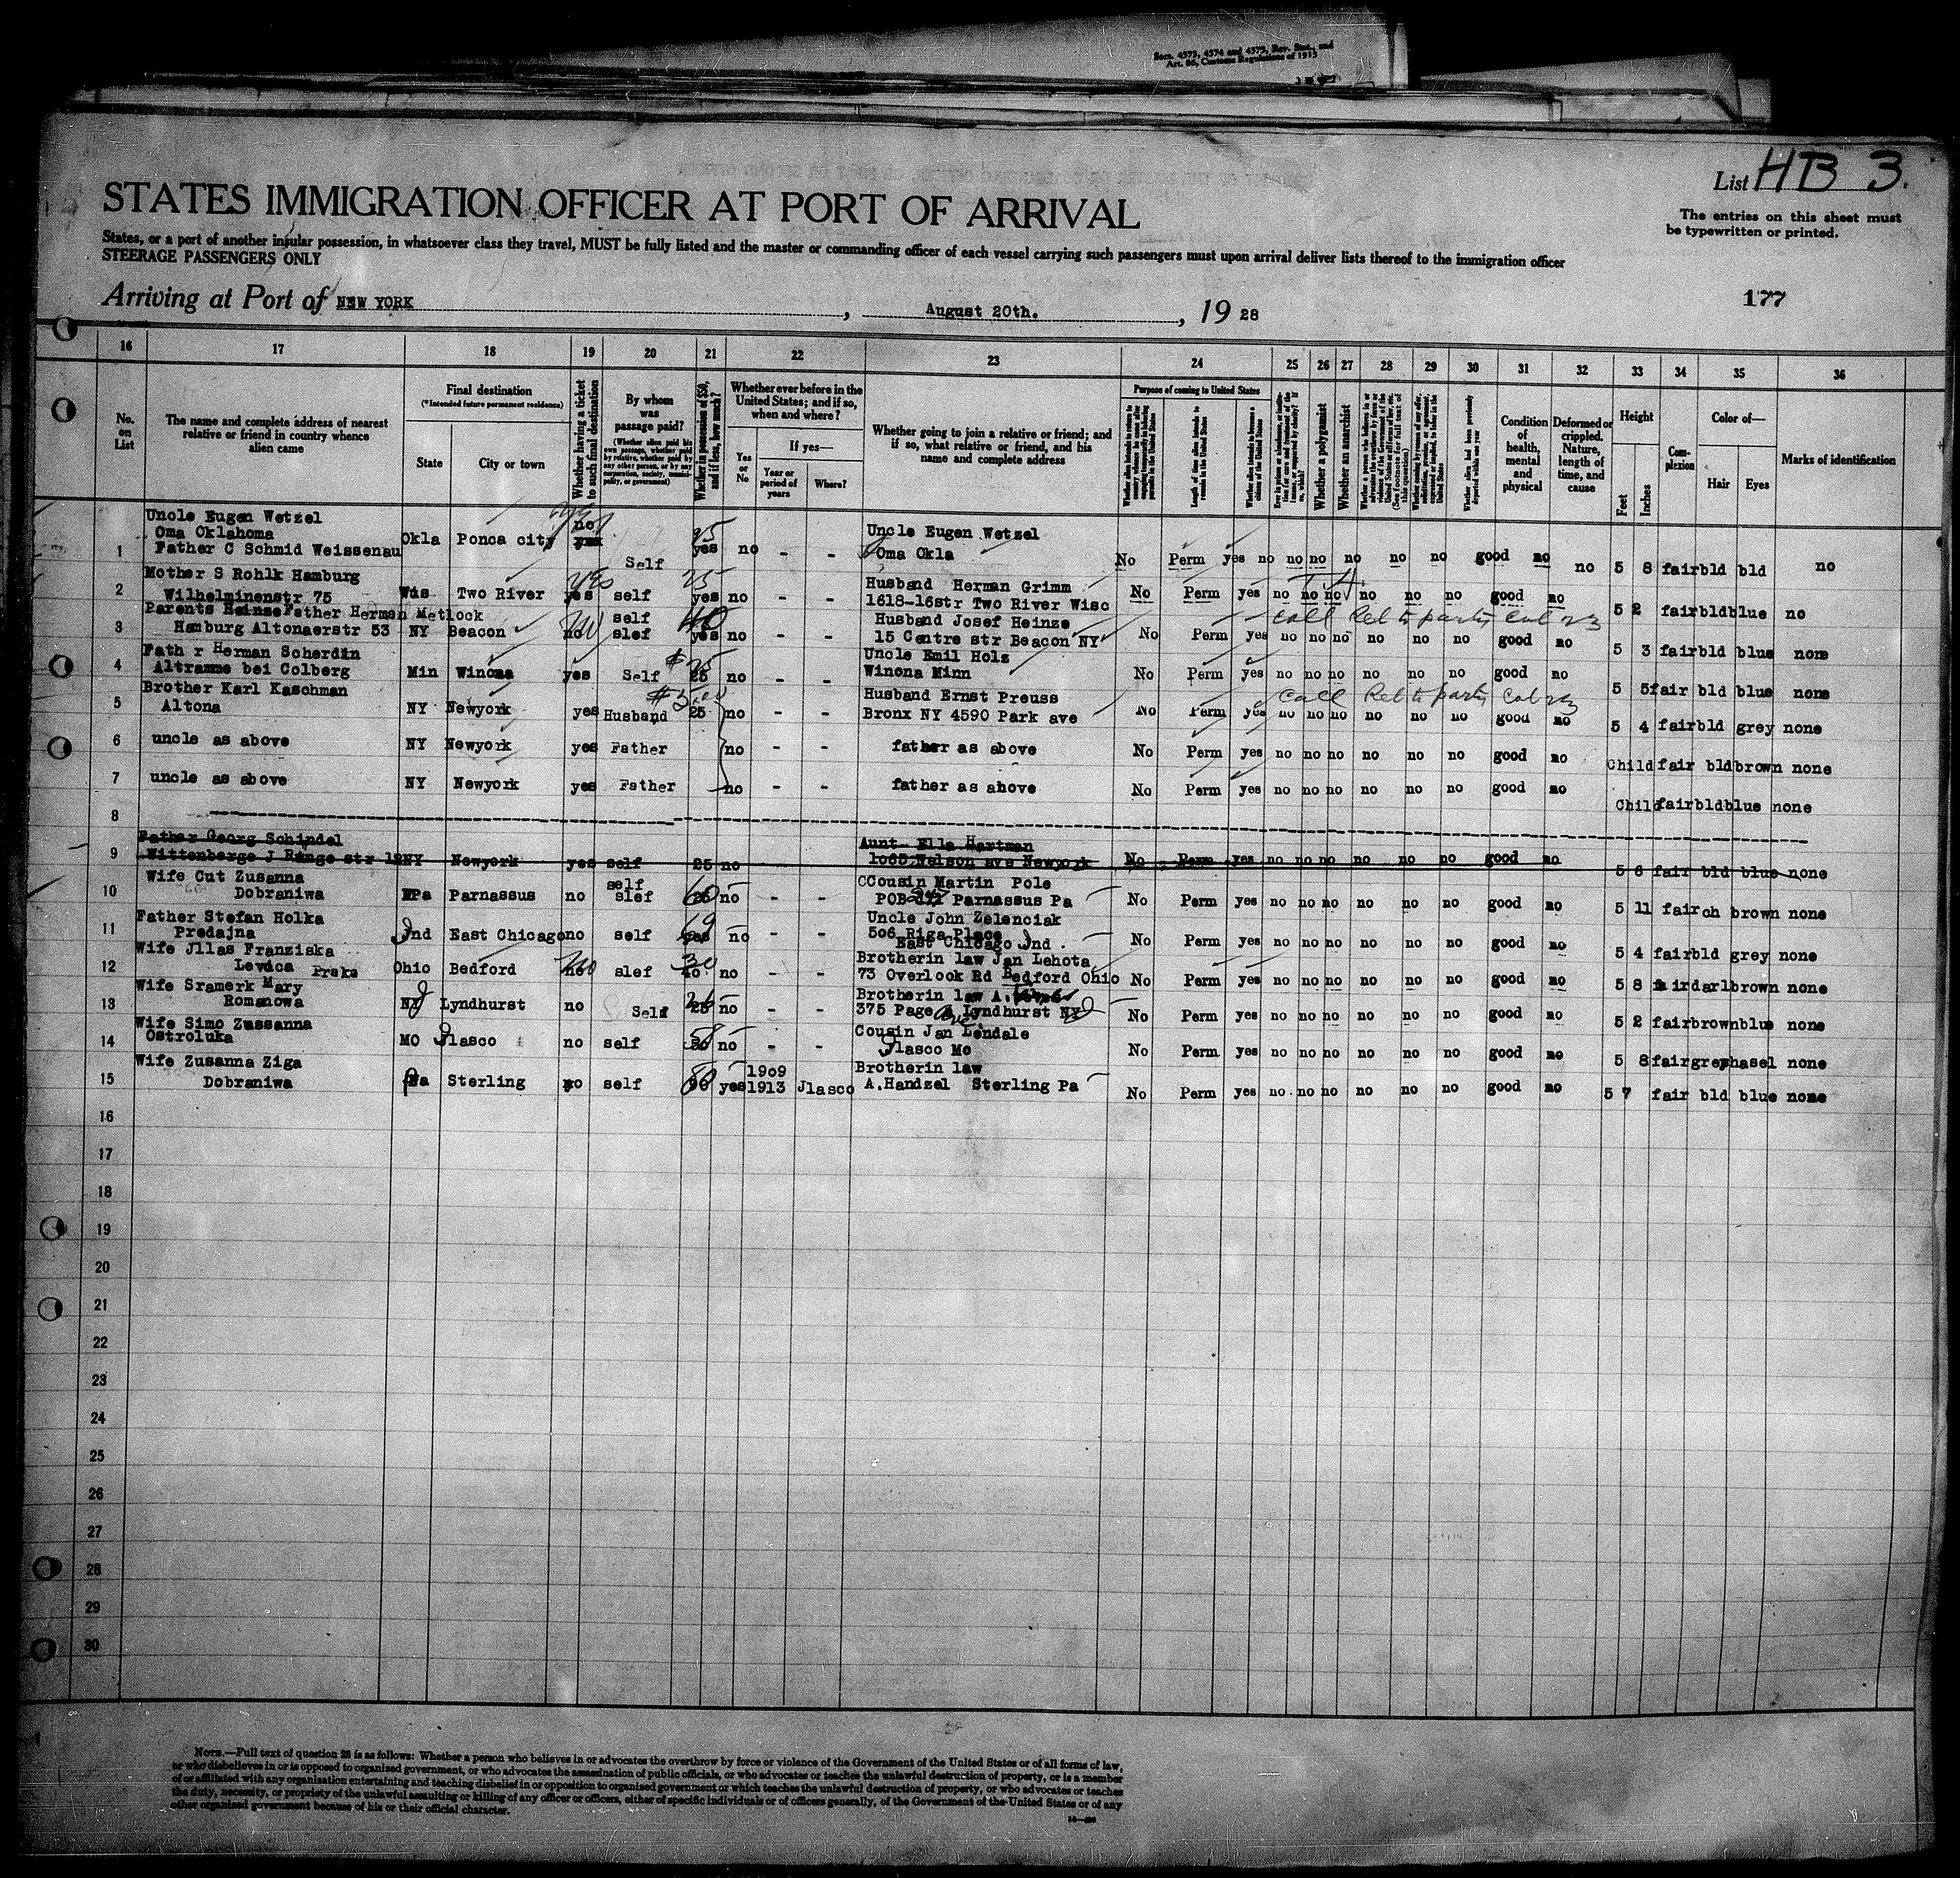 Secs. 4573, 4574 and 4575, Rev. Stat., and
Art. 86, Customs Regulations of 1915
List HB 3.
STATES IMMIGRATION OFFICER AT PORT OF ARRIVAL
The entries on this sheet must
be typewritten or printed.
States, or a port of another insular possession, in whatsoever class they travel, MUST be fully listed and the master or commanding officer of each vessel carrying such passengers must upon arrival deliver lists thereof to the immigration officer
STEERAGE PASSENGERS ONLY
Arriving at Port of NEW YORK, August 20th., 19 28
177
16 17 18 19 20 21 22 23 24 25 26 27 28 29 30 31 32 33 34 35 36
No. on List
The name and complete address of nearest relative or friend in country whence alien came
Final destination
(*Intended future permanent residence)
State City or town
Whether having a ticket to such final destination
By whom was passage paid?
(Whether alien paid his own passage, whether paid by relative, whether paid by any other person, or by any corporation, society, municipality, or government)
Whether in possession of $50, and if less, how much?
Whether ever before in the United States; and if so, when and where?
Yes or No
If yes—
Year or period of years
Where?
Whether going to join a relative or friend; and if so, what relative or friend, and his name and complete address
Purpose of coming to United States
Length of time alien intends to remain in the United States
Whether alien intends to become a citizen of the United States
Whether a polygamist
Whether an anarchist
Condition of health, mental and physical
Deformed or crippled. Nature, length of time, and cause
Height
Feet Inches
Complexion
Color of—
Hair Eyes
Marks of identification
Uncle Eugen Wetzel Uncle Eugen Wetzel
Oma Oklahoma Okla Ponca city no 25
1 Father C Schmid Weissenau Self yes no - - Oma Okla No Perm yes no no no no no no good no no 5 8 fair bld bld no
Mother S Rohlk Hamburg yes 25 Husband Herman Grimm
2 Wilhelminenstr 75 Wis Two River yes self yes no 1618-16str Two River Wisc No Perm yes no no no no no no good no 5 2 fair bld blue no
Parents Heinze Father Herman Metlock self 40 Husband Josef Heinze call Rel to party Col 23
3 Hamburg Altonaerstr 53 NY Beacon no slef yes no - - 15 Centre str Beacon NY No Perm yes no no no no no no good no 5 3 fair bld blue none
Fath r Herman Scherdin $25 Uncle Emil Holz
4 Altramme bei Colberg Min Winona yes Self 25 no - - Winona Minn No Perm yes no no no no no no good no 5 5 fair bld blue none
Brother Karl Kaschman Husband Ernst Preuss call Rel to party Col 23
5 Altona NY Newyork yes Husband 25 no - - Bronx NY 4590 Park ave No Perm yes no no no no no no good no 5 4 fair bld grey none
6 uncle as above NY Newyork yes Father no - - father as above No Perm yes no no no no no no good no Child fair bld brown none
7 uncle as above NY Newyork yes Father no - - father as above No Perm yes no no no no no no good no Child fair bld blue none
8
Father Georg Schindel Aunt Ella Hartman
9 Wittenberge J Runge str 12 NY Newyork yes self 25 no 1065 Nelson ave Newyork No Perm yes no no no no no no good no 5 6 fair bld blue none
Wife Cut Zusanna self CCousin Martin Pole
10 Dobraniwa Pa Parnassus no slef 60 no - - POB Parnassus Pa No Perm yes no no no no no no good no 5 11 fair ch brown none
Father Stefan Holka 69 Uncle John Zelenciak
11 Predajna Jnd East Chicago no self yes no - - 506 Riga Place
East Chicago Jnd. No Perm yes no no no no no no good no 5 4 fair bld grey none
Wife Jllas Franziska 30 Brotherin law Jan Lehota
12 Levica Prska Ohio Bedford no slef 40 no - - 73 Overlook Rd Bedford Ohio No Perm yes no no no no no no good no 5 8 airdarlbrown none
Wife Sramerk Mary Brotherin law A.
13 Romanowa NJ Lyndhurst no Self 25 no - - 375 Page Ave Lyndhurst NJ No Perm yes no no no no no no good no 5 2 fair brown blue none
Wife Simo Zussanna Cousin Jan Lendale
14 Ostroluka MO Jlasco no self 58 no - - Jlasco Mo No Perm yes no no no no no no good no 5 8 fair grey hasel none
Wife Zusanna Ziga 1909 Brotherin law
15 Dobraniwa Pa Sterling no self 80 yes 1913 Jlasco A.Handzel Sterling Pa No Perm yes no no no no no no good no 5 7 fair bld blue none
16
17
18
19
20
21
22
23
24
25
26
27
28
29
30
NOTE.—Full text of question 28 is as follows: Whether a person who believes in or advocates the overthrow by force or violence of the Government of the United States or of all forms of law,
or who disbelieves in or is opposed to organized government, or who advocates the assassination of public officials, or who advocates or teaches the unlawful destruction of property, or is a member
of or affiliated with any organization entertaining and teaching disbelief in or opposition to organized government or which teaches the unlawful destruction of property, or who advocates or teaches
the duty, necessity, or propriety of the unlawful assaulting or killing of any officer or officers, either of specific individuals or of officers generally, of the Government of the United States or of any
other organized government because of his or their official character.